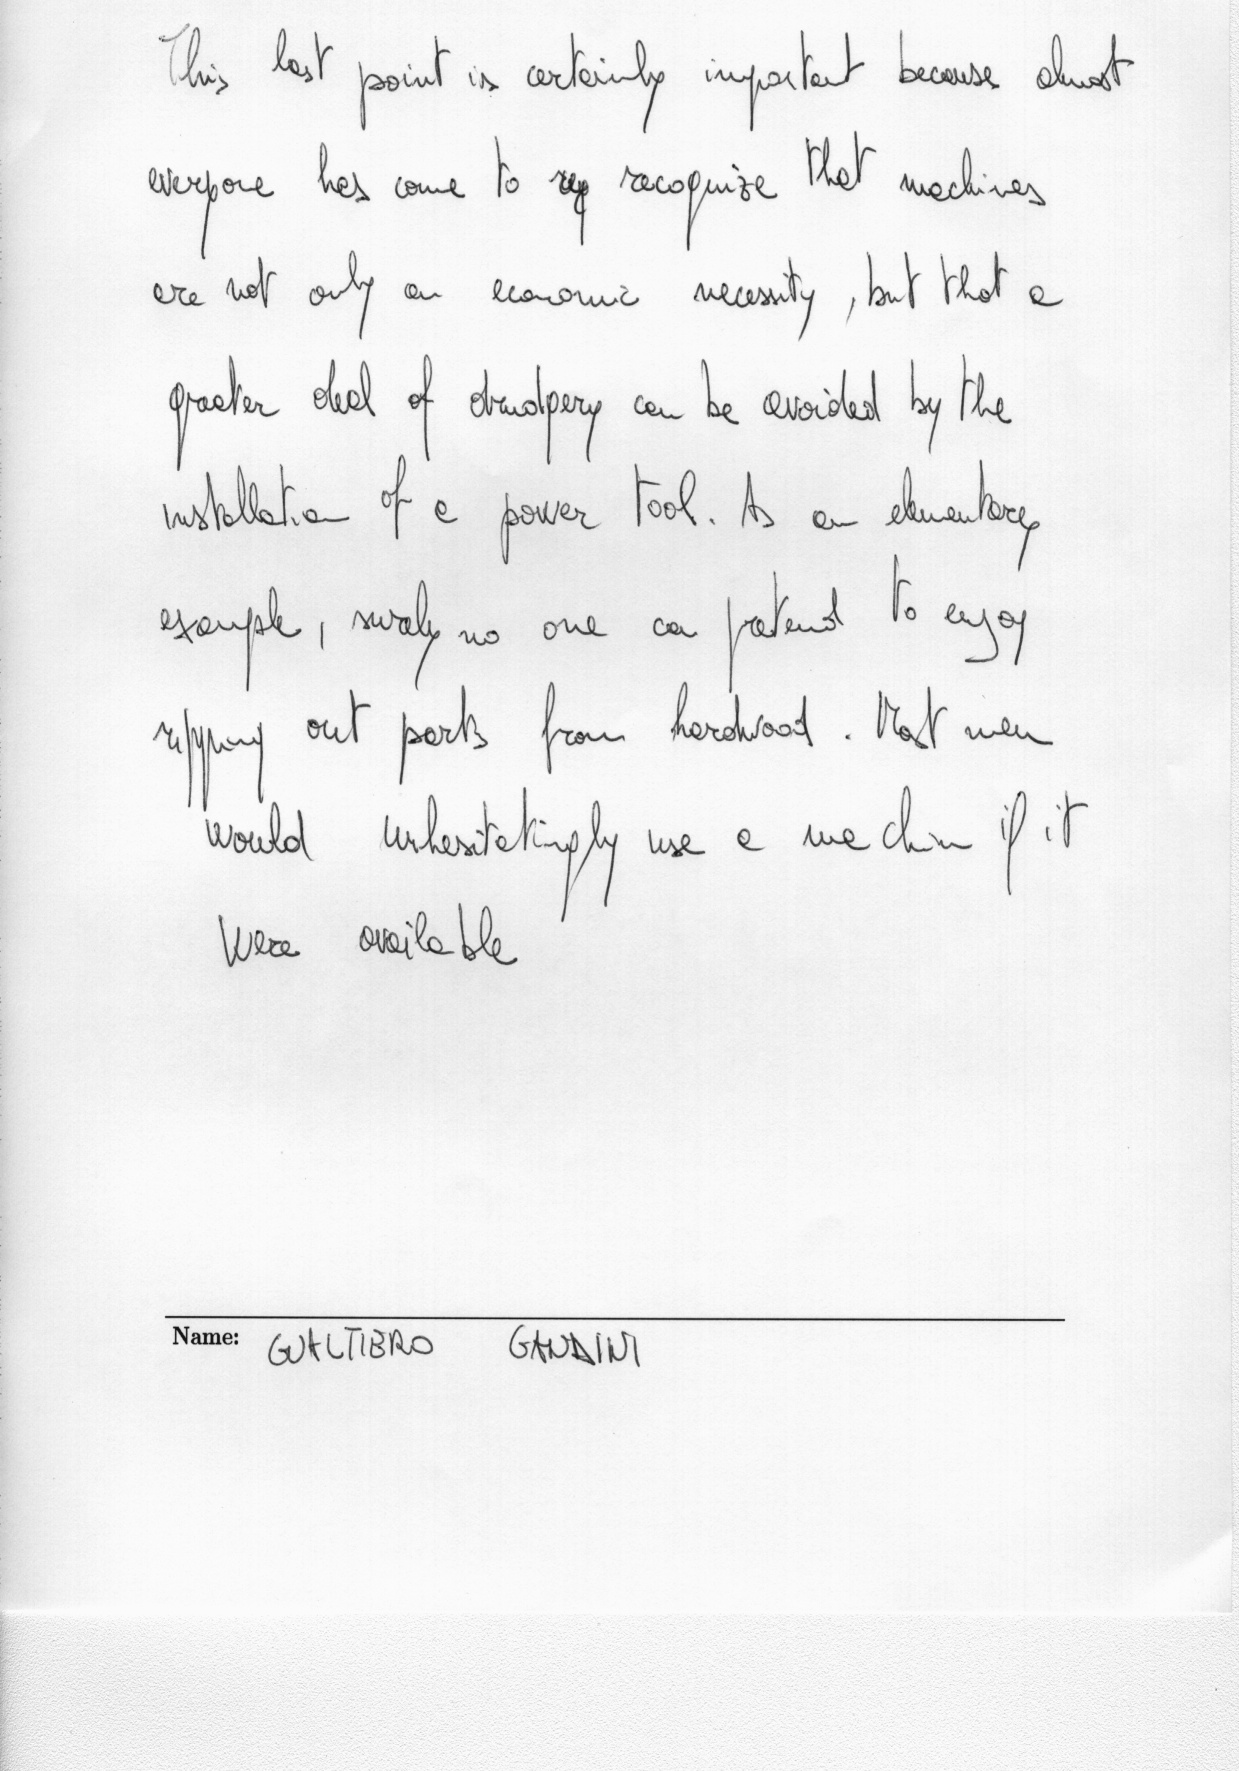 This last point is certainly important because almost
everyone has come to recognize that machines
are not only an economic necessity, but that a
greater deal of drudgery can be avoided by the
installation of a power tool. As an elementary
example, surely no one can pretend to enjoy
ripping out parts from hardwood. Most men
would unhesitatingly use a machin if it
were available
Name: GUALTIERO GANDINI